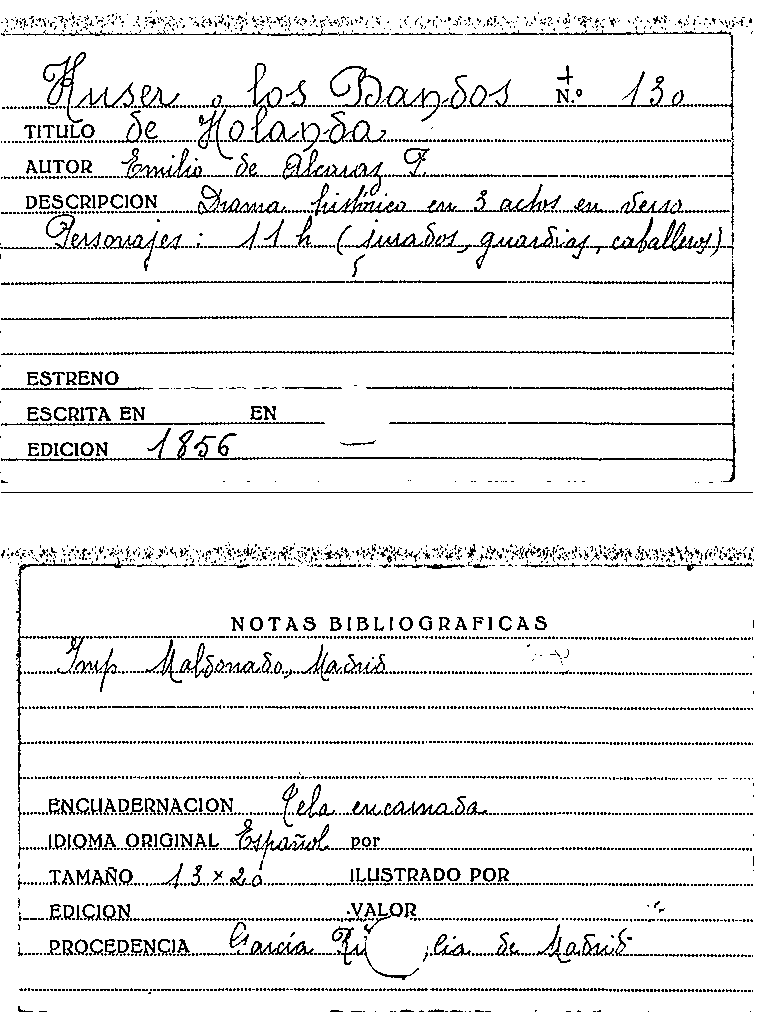 Huser o los Bandos N.º 130
TITULO de Holanda
AUTOR Emilio de Alcaraz F.
DESCRIPCION Drama histórico en 3 actos en verso
Personajes: 11 h (jurados, guardias, caballeros)
ESTRENO
ESCRITA EN EN
EDICION 1856 —
NOTAS BIBLIOGRAFICAS
Imp Maldonado, Madrid
ENCUADERNACION Tela encarnada
IDIOMA ORIGINAL Español por
TAMAÑO 13 x 20 ILUSTRADO POR
EDICION VALOR
PROCEDENCIA García de Madrid